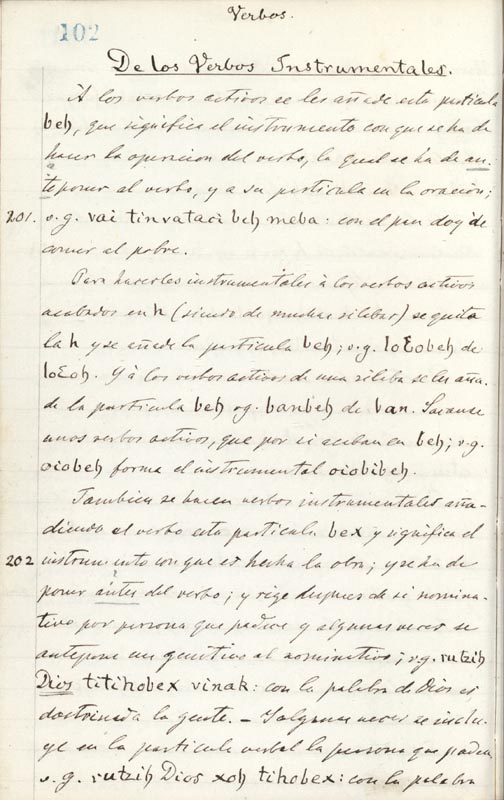 Verbos.
102
De los Verbos Instrumentales.
A los verbos activos se les añade esta particula
beh, que significa el instrumento con que se ha de
hacer la operacion del verbo, la qual se ha de an-
teponer al verbo, y a su particula en la oracion;
201. v.g. vai tinvataci beh meba: con el pan doy de
comer al pobre.
Para hacerles instrumentales à los verbos activos
acabados en h (siendo de muchas silabas) se quita
la h y se añade la particula beh; v.g. loƐobeh de
loƐoh. Y à los verbos activos de una silaba se les aña-
de la particula beh vg. banbeh de ban. Sacanse
unos verbos activos, que por si acaban en beh; v.g.
oiobeh forma el instrumental oiobibeh.
Tambien se hacen verbos instrumentales aña-
diendo al verbo esta particula bex y significa el
202 instrumento con que es hecha la obra; y se ha de
poner àntes del verbo; y rige despues de si nomina-
tivo por persona que padece y algunas veces se
antepone un genitivo al nominativo; v.g. rutzih
Dios titihobex vinak: con la palabra de Dios es
doctrinada la gente. – Y algunas veces se inclu-
ye en la particula verbal la persona que padece
v.g. rutzih Dios xoh tihobex: con la palabra